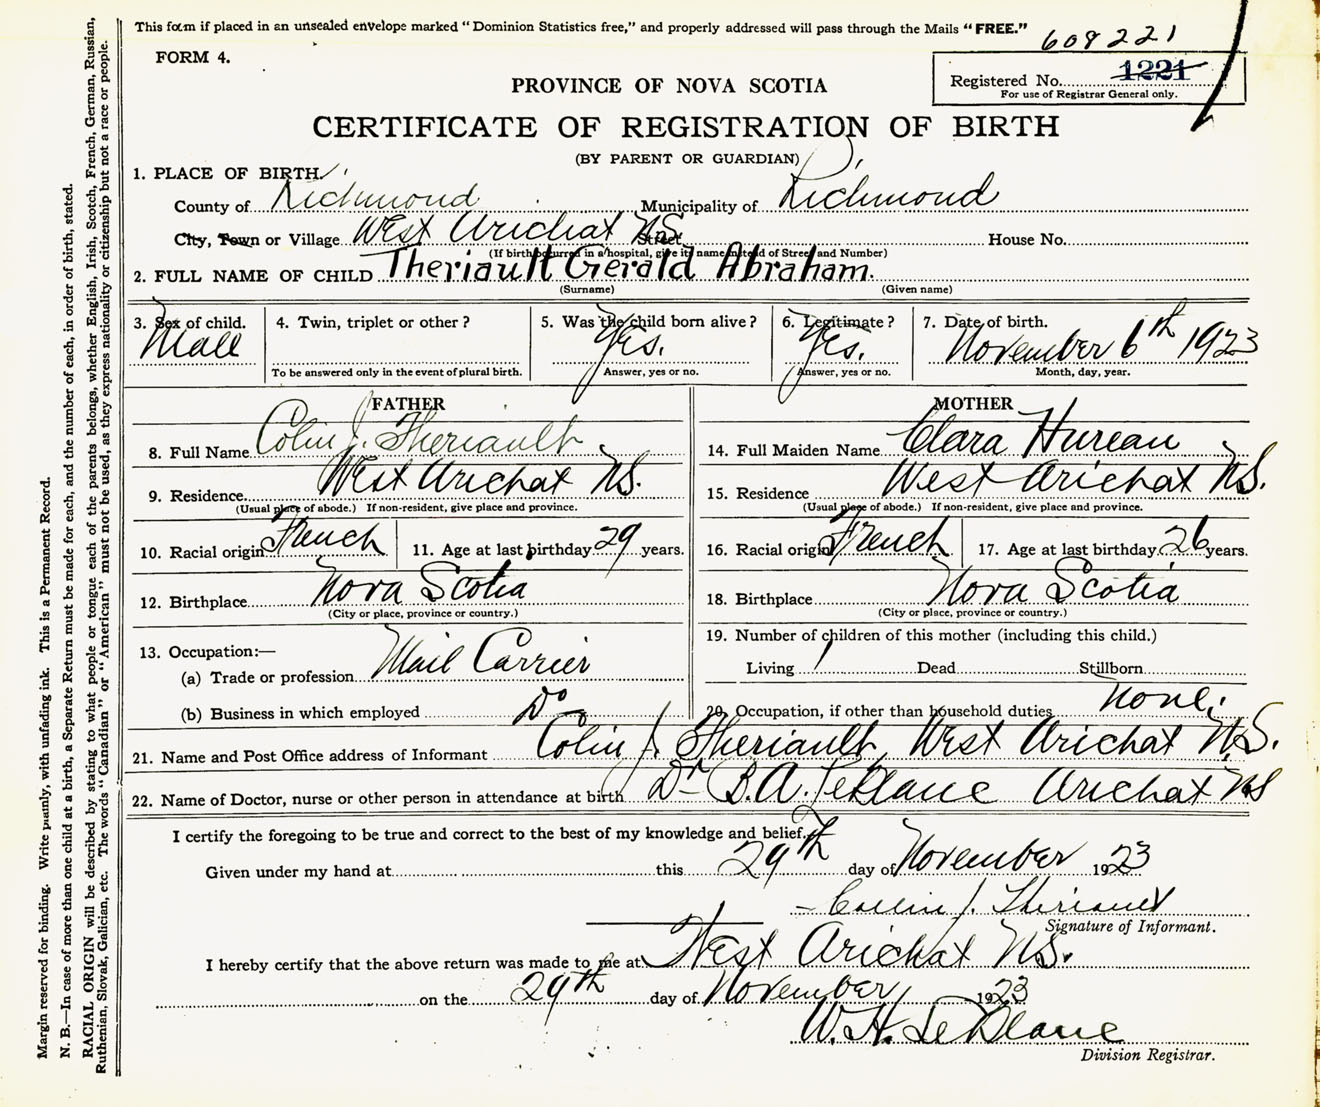 This form if placed in an unsealed envelope marked "Dominion Statistics free," and properly addressed will pass through the Mails "FREE."
608221
FORM 4.
Registered No. 1221
For use of Registrar General only.
PROVINCE OF NOVA SCOTIA
CERTIFICATE OF REGISTRATION OF BIRTH
(BY PARENT OR GUARDIAN)
1. PLACE OF BIRTH.
County of Richmond Municipality of Richmond
City, Town or Village West Arichat N.S. Street House No.
(If birth occurred in a hospital, give its name instead of Street and Number)
2. FULL NAME OF CHILD Theriault Gerald Abraham.
(Surname) (Given name)
3. Sex of child. 4. Twin, triplet or other? 5. Was the child born alive? 6. Legitimate? 7. Date of birth.
Male Yes. Yes. November 6th 1923
To be answered only in the event of plural birth. Answer, yes or no. Answer, yes or no. Month, day, year.
FATHER
8. Full Name Colin J. Theriault
9. Residence West Arichat N.S.
(Usual place of abode.) If non-resident, give place and province.
10. Racial origin French 11. Age at last birthday 29 years.
12. Birthplace Nova Scotia
(City or place, province or country.)
13. Occupation:—
(a) Trade or profession Mail Carrier
(b) Business in which employed Do
MOTHER
14. Full Maiden Name Clara Hureau
15. Residence West Arichat N.S.
(Usual place of abode.) If non-resident, give place and province.
16. Racial origin French 17. Age at last birthday 26 years.
18. Birthplace Nova Scotia
(City or place, province or country.)
19. Number of children of this mother (including this child.)
Living 1 Dead Stillborn
20. Occupation, if other than household duties None.
21. Name and Post Office address of Informant Colin J. Theriault, West Arichat N.S.
22. Name of Doctor, nurse or other person in attendance at birth Dr B.A. LeBlanc Arichat NS
I certify the foregoing to be true and correct to the best of my knowledge and belief.
Given under my hand at this 29th day of November 1923
Collin J. Theriault
Signature of Informant.
I hereby certify that the above return was made to me at West Arichat N.S.
on the 29th day of November 1923
W. H. LeBlanc
Division Registrar.
Margin reserved for binding. Write plainly, with unfading ink. This is a Permanent Record.
N. B.—In case of more than one child at a birth, a Separate Return must be made for each, and the number of each, in order of birth, stated.
RACIAL ORIGIN will be described by stating to what people or tongue each of the parents belongs, whether English, Irish, Scotch, French, German, Russian,
Ruthenian, Slovak, Galician, etc. The words "Canadian" or "American" must not be used, as they express nationality or citizenship but not a race or people.